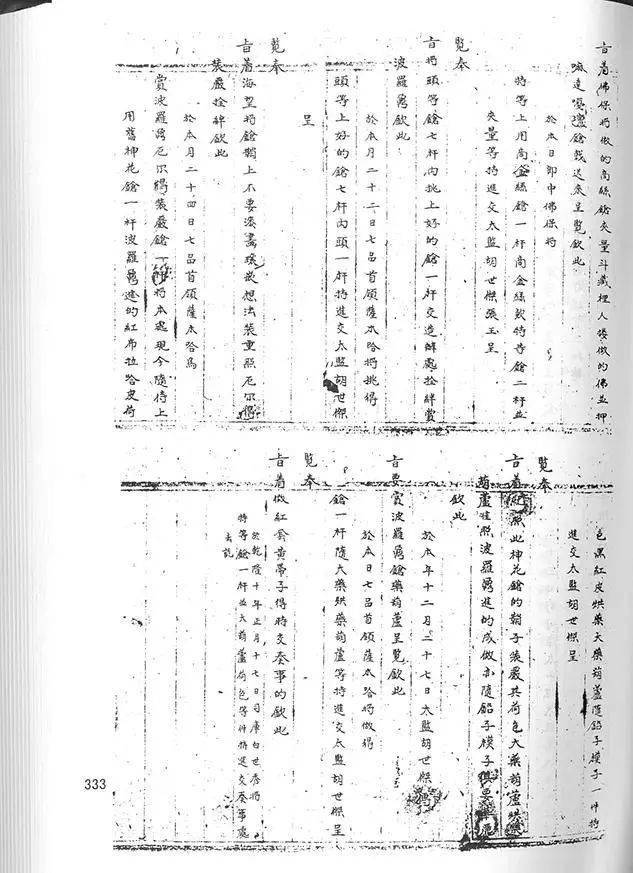 旨着佛保將做的高絲鎗夾量斗藏裡人樣做的佛並押
噶達嘎鎗錢送來呈覽欽此
於本日郎中佛保將
特等上用高金絲鎗一杆高金絲欽特等鎗二杆並
夾量等持進交太監胡世傑張玉呈
覽奉
旨將頭等鎗七杆內挑上好的鎗一杆交造辦處拴辦賞
波羅鼐欽此
於本月二十二日七品首領薩木哈將挑得
頭等上好的鎗七杆內頭一杆持進交太監胡世傑
呈
覽奉
旨着海望將鎗鞘上不要漆畫環嵌想法裝重照厄尔得
裝嚴拴辦欽此
於本月二十四日七品首領薩木哈為
賞波羅鼐厄尔得裝嚴鎗一杆將本處現今隨侍上
用舊神花鎗一杆波羅鼐進的紅布拉哈皮荷
色黑紅皮烘藥大藥葫蘆隨鉛子模子一件持
進交太監胡世傑呈
覽奉
旨着照此神花鎗的鞘子裝嚴其荷包大藥葫蘆烘
葫蘆准照波羅鼐進的成做亦隨鉛子模子
欽此
於本年十二月二十七日太監胡世傑
旨要賞波羅鼐鎗藥葫蘆呈覽欽此
於本日七品首領薩木哈將做得
鎗一杆隨大藥烘藥葫蘆等持進交太監胡世傑呈
覽奉
旨着做紅套黃帶子得時交奏事的欽此
於乾隆十年正月十七日司庫白世秀將
特等鎗一杆並大葫蘆荷包等件持進交奏事處
去訖
333